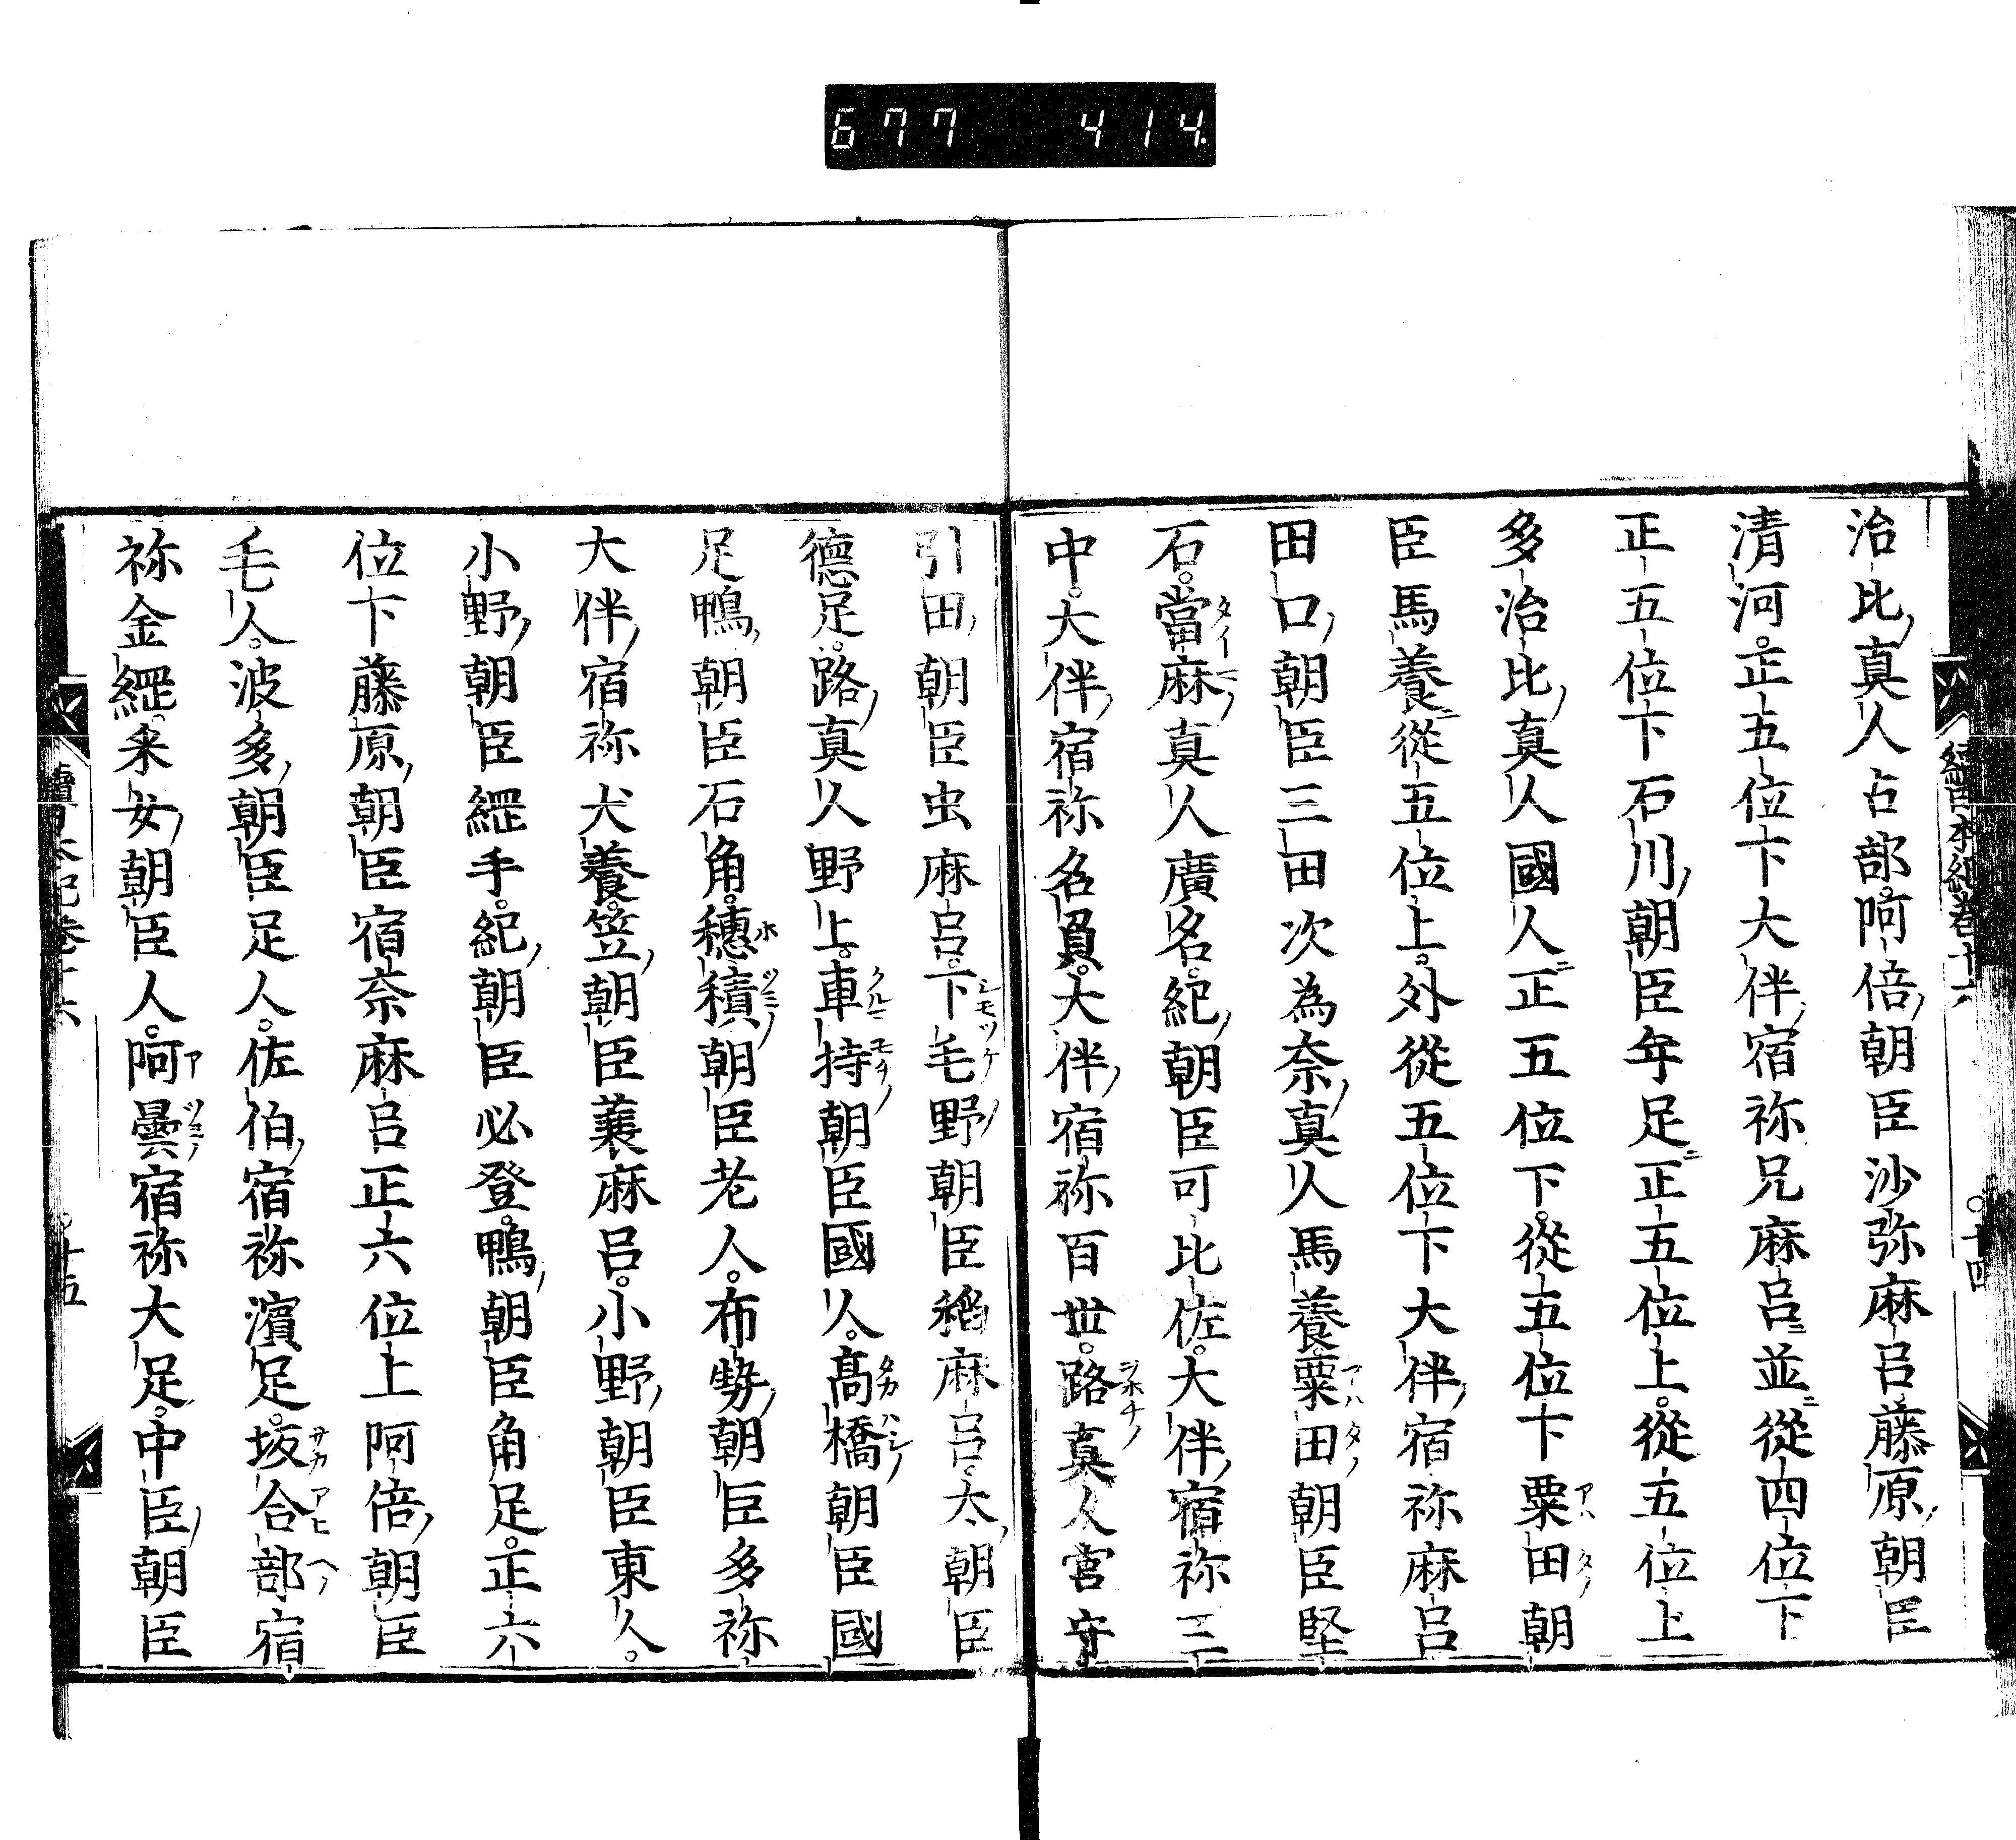 677 414
續日本紀卷十六 十四
治比真人占部。阿倍朝臣沙弥麻呂。藤原朝臣
清河。正五位下大伴宿祢兄麻呂並從四位下
正五位下石川朝臣年足正五位上。從五位上
多治比真人國人正五位下。從五位下粟田朝
臣馬養從五位上。外從五位下大伴宿祢麻呂
田口朝臣三田次為奈真人馬養。粟田朝臣堅
石。當麻真人廣名。紀朝臣可比佐。大伴宿祢三
中。大伴宿祢名負。大伴宿祢百世。路真人宮守
引田朝臣虫麻呂。下毛野朝臣稻麻呂。太朝臣
德足。路真人野上。車持朝臣國人。高橋朝臣國
足鴨朝臣石角。穗積朝臣老人。布勢朝臣多祢
大伴宿祢犬養。笠朝臣蓑麻呂。小野朝臣東人。
小野朝臣綱手。紀朝臣必登。鴨朝臣角足。正六
位下藤原朝臣宿奈麻呂正六位上阿倍朝臣
毛人。波多朝臣足人。佐伯宿祢濱足。坂合部宿
祢金綱。釆女朝臣人。阿曇宿祢大足。中臣朝臣
續日本紀卷十六 十五